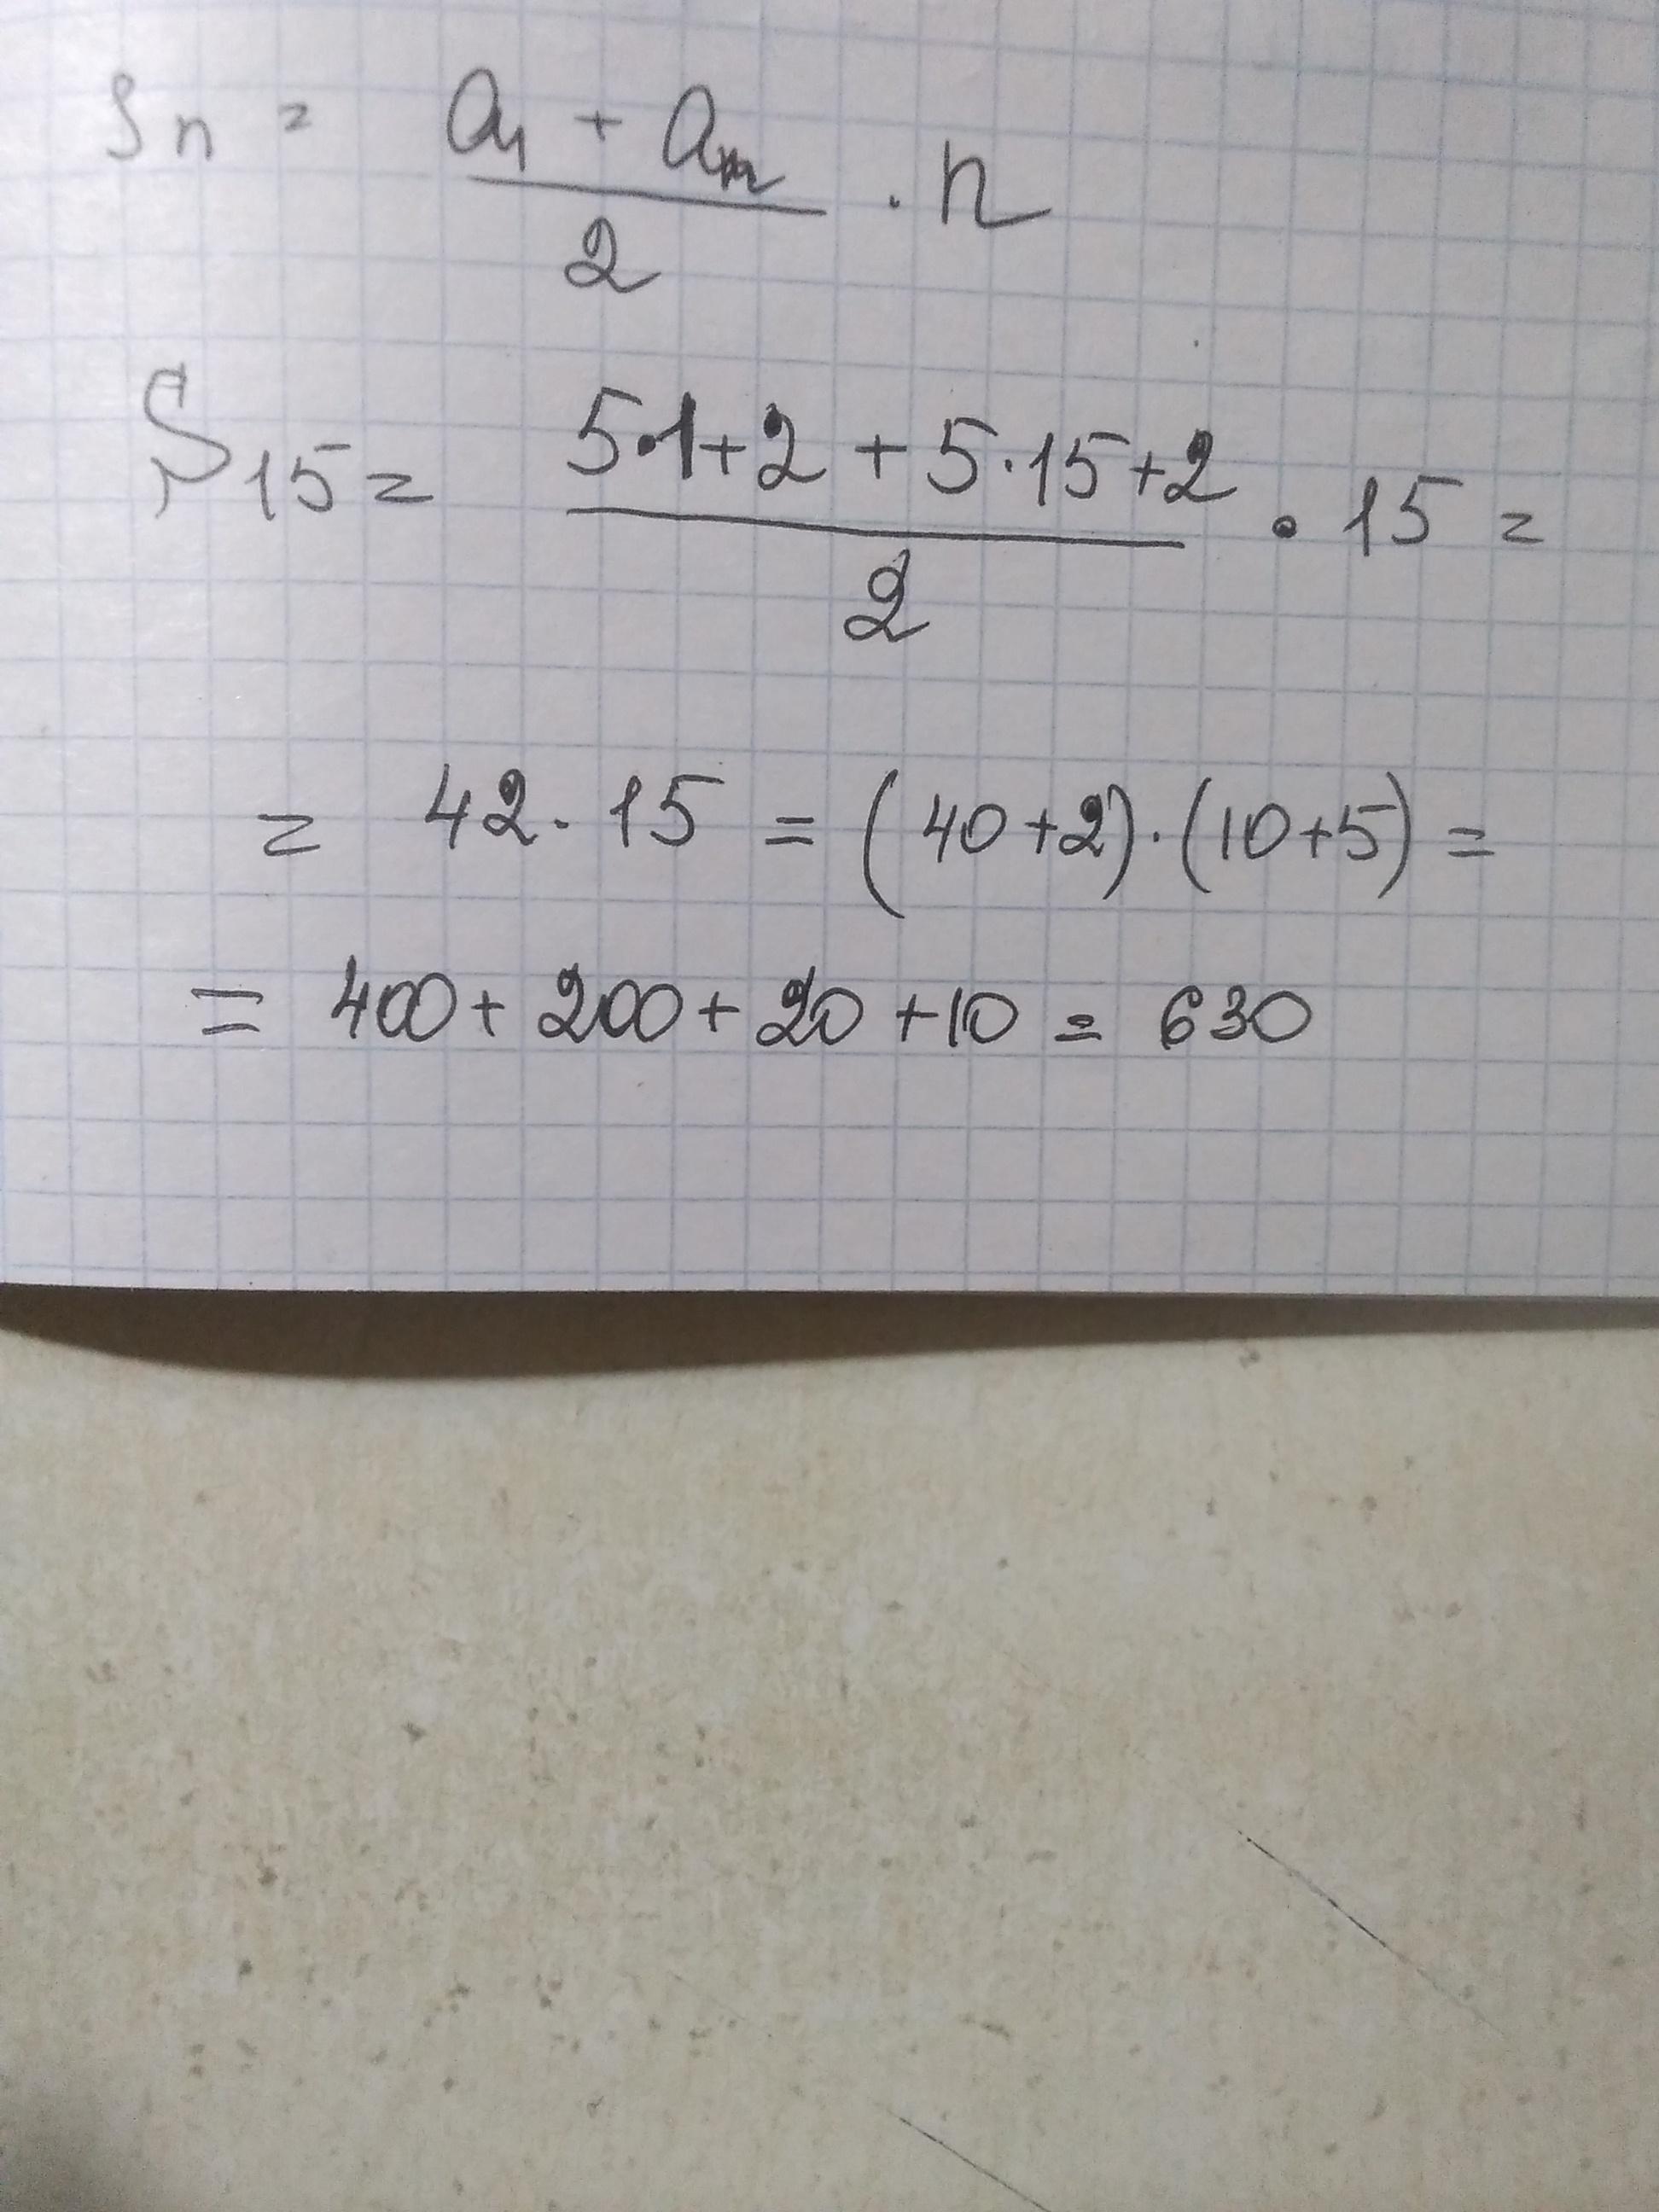 Sn = (a₁ + aₙ)/2 · n
S₁₅ = (5·1+2 + 5·15+2)/2 · 15 =
= 42 · 15 = (40+2)·(10+5) =
= 400 + 200 + 20 + 10 = 630